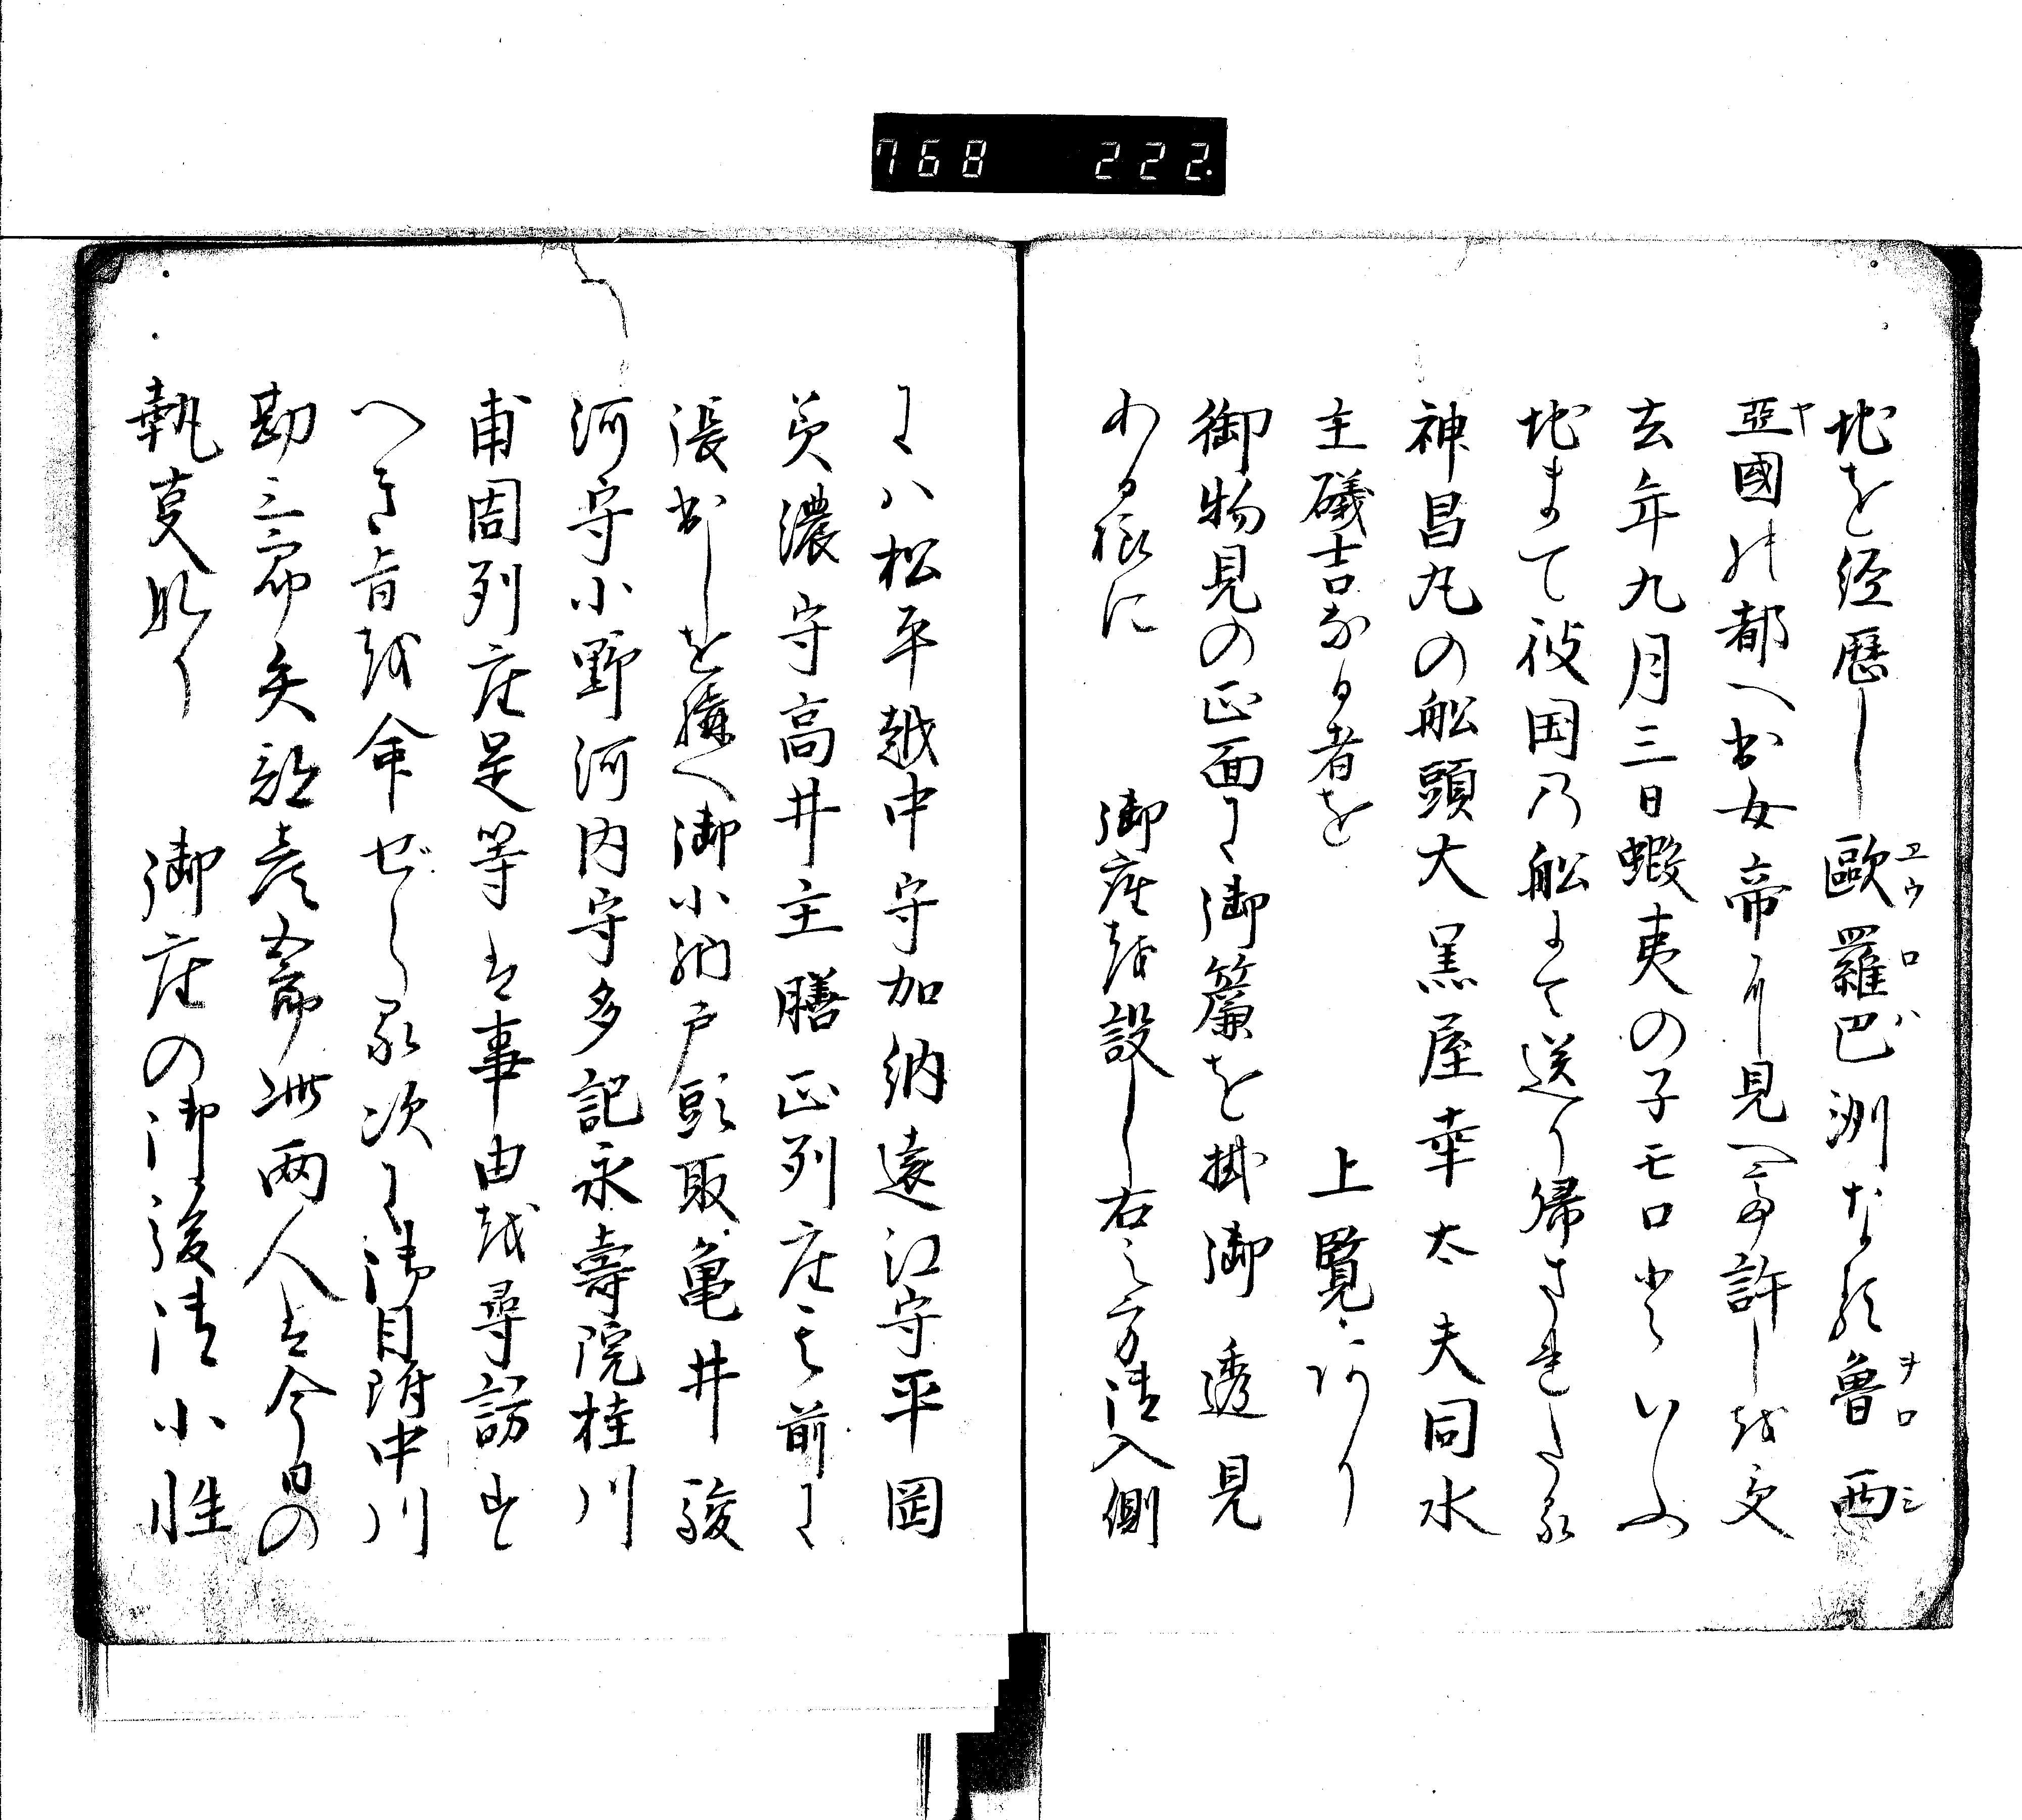 768 222.
地を経歴し歐羅巴洲なる魯西
亞國の都へ出女帝に見へ許しを受
去年九月三日蝦夷の子モロといふ
地まて彼国乃舩にて送り帰されたる
神昌丸の舩頭大黒屋幸太夫同水
主磯吉なる者を 上覧あり
御物見の正面に御簾を掛御透見
ある様に 御座を設し右之方御入側
に八松平越中守加納遠江守平岡
美濃守高井主膳正列座其前に
張出しを構へ御小納戸頭取亀井駿
河守小野河内守多記永壽院桂川
甫周列座是等は事由越尋訪す
へき旨越命せらる次に御目附中川
勘三郎矢部彦五郎此両人は今日の
執事なり 御座の御後御小性